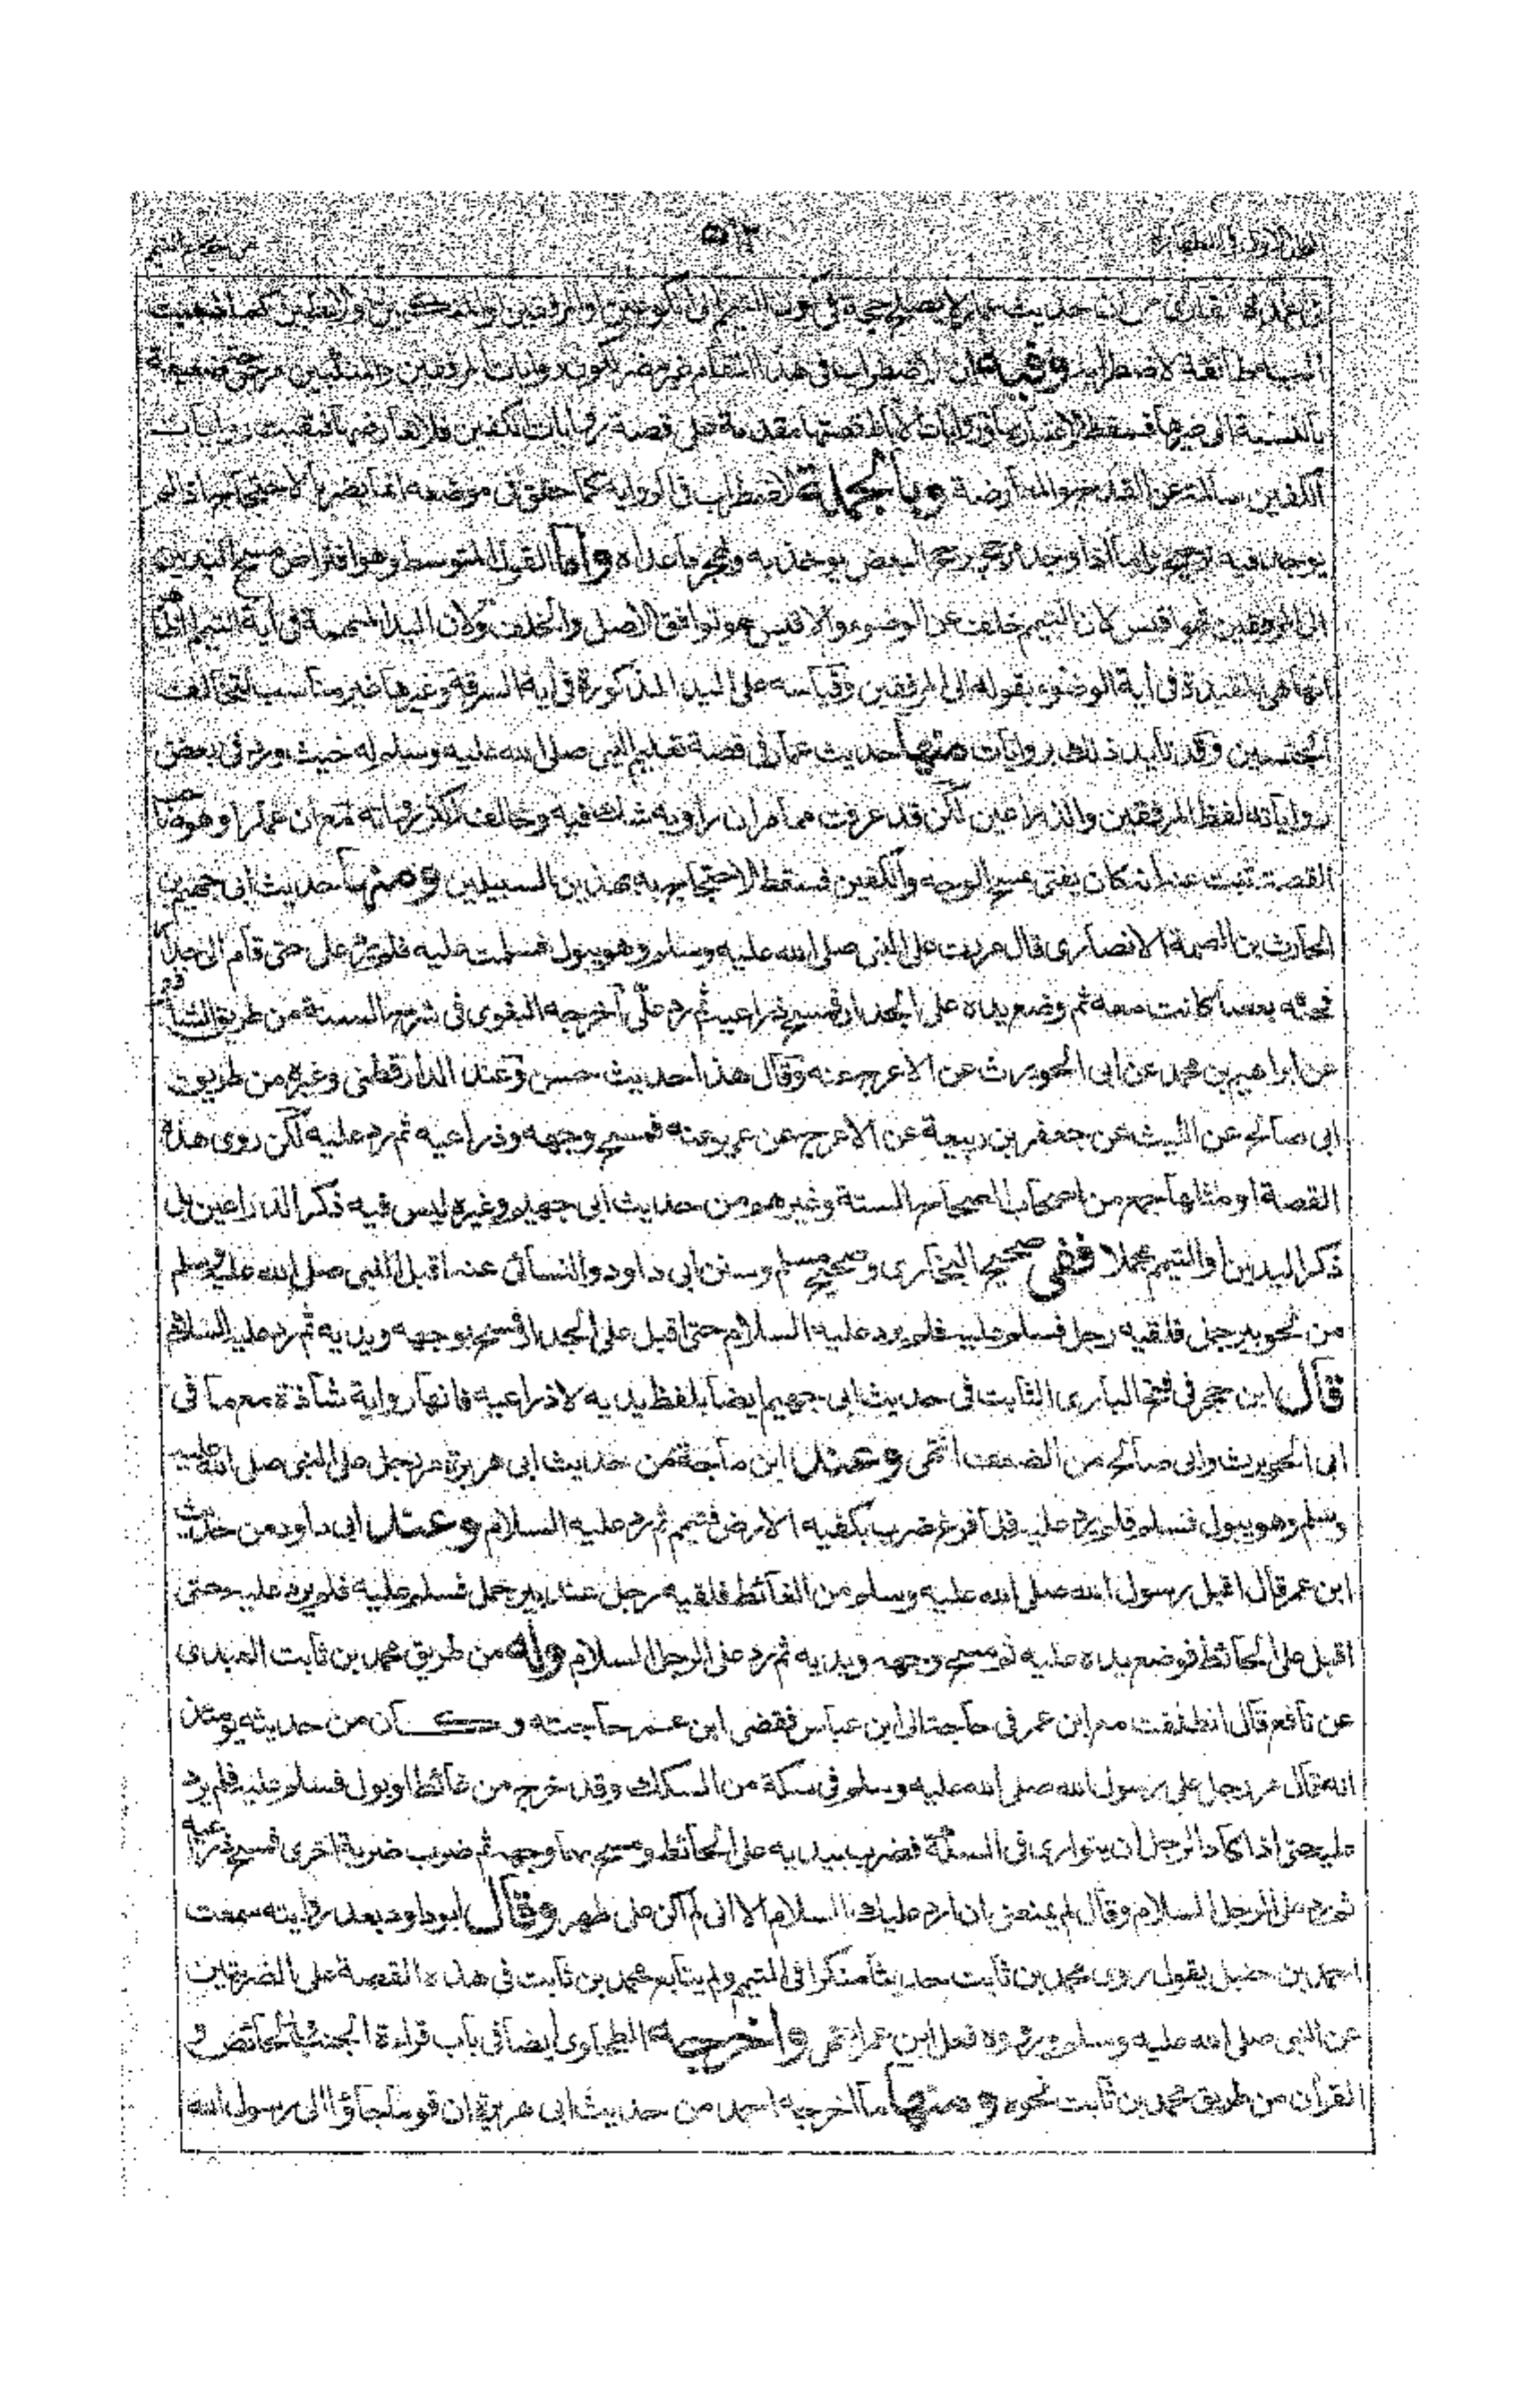 ٥١٣
في عمدة القاري من ان حديث عمار لا يصلح حجة في كون التيمم الى الكوعين او المرفقين او المنكبين او الابطين كما ذهبت
اليه طائفة لاضطرابه وفيه ان الاضطراب في هذا المقام غير مضر لكون روايات المرفقين والمنكبين مرجوحة ضعيفة
بالنسبة الى غيرها فسقط الاعتبار بها وروايات الآباط قصتها مقدمة على قصة روايات الكفين فلا تعارضها فبقيت روايات
الكفين سالمة عن القدح والمعارضة وبالجملة الاضطراب في الرواية كما حقق في موضعه انما يضر بالاحتجاج اذا لم
يوجد فيه ترجيح واما اذا وجد ترجيح البعض يوخذ به ويهجر ما عداه واما القول المتوسط وهو افتراض مسح اليدين
الى المرفقين فهو اقيس لان التيمم خلف عن الوضوء والاقيس هو توافق الاصل والخلف ولان اليد المبهمة في آية التيمم
انما هي المقيدة في آية الوضوء بقوله الى المرفقين وقياسه على اليد المذكورة في آية السرقة وغيرها غير مناسب لتخالف
الجنسين وقد تأيد ذلك بروايات منها حديث عمار في قصة تعليم النبي صلى الله عليه وسلم له حيث ورد في بعض
رواياته لفظ المرفقين والذراعين لكن قد عرفت مما مر ان راويه شك فيه وخالف اكثر رواته مع ان عمارا وهو صاحب
القصة ثبت عنه انه كان يفتي بمسح الوجه والكفين فسقط الاحتجاج به بهذين السبيلين ومنها حديث ابي جهيم بن
الحارث بن الصمة الانصاري قال مررت على النبي صلى الله عليه وسلم وهو يبول فسلمت عليه فلم يرد علي حتى قام الى جدار
فحته بعصا كانت معه ثم وضع يده على الجدار فمسح ذراعيه ثم رد علي اخرجه البغوي في شرح السنة من طريق الشافعي
عن ابراهيم بن محمد عن ابي الحويرث عن الاعرج عنه وقال هذا حديث حسن وعند الدارقطني وغيره من طريق
ابي صالح عن الليث عن جعفر بن ربيعة عن الاعرج عن عمير عنه فمسح وجهه وذراعيه ثم رد عليه لكن روى هذه
القصة او مثلها جمع من اصحاب الصحاح الستة وغيرهم من حديث ابي جهيم وغيره ليس فيه ذكر الذراعين بل
ذكر اليدين او التيمم مجملا ففي صحيح البخاري وصحيح مسلم وسنن ابي داود والنسائي عنه اقبل النبي صلى الله عليه وسلم
من نحو بير جمل فلقيه رجل فسلم عليه فلم يرد عليه السلام حتى اقبل على الجدار فمسح بوجهه ويديه ثم رد عليه السلام
قال ابن حجر في فتح الباري الثابت في حديث ابي جهيم ايضا بلفظ يديه لا ذراعيه فانها رواية شاذة مع ما في
ابي الحويرث وابي صالح من الضعف انتهى وعند ابن ماجة من حديث ابي هريرة مر رجل على النبي صلى الله عليه
وسلم وهو يبول فسلم فلم يرد عليه فلما فرغ ضرب بكفيه الارض فتيمم ثم رد عليه السلام وعند ابي داود من حديث
ابن عمر قال اقبل رسول الله صلى الله عليه وسلم من الغائط فلقيه رجل عند بير جمل فسلم عليه فلم يرد عليه حتى
اقبل على الحائط فوضع يده عليه ثم مسح وجهه ويديه ثم رد على الرجل السلام وله من طريق محمد بن ثابت العبدي
عن نافع قال انطلقت مع ابن عمر في حاجة الى ابن عباس فقضى ابن عمر حاجته وكان من حديثه يومئذ
انه قال مر رجل على رسول الله صلى الله عليه وسلم في سكة من السكك وقد خرج من غائط او بول فسلم عليه فلم يرد
عليه حتى اذا كاد الرجل ان يتوارى في السكة فضرب بيديه على الحائط ومسح بهما وجهه ثم ضرب ضربة اخرى فمسح ذراعيه
ثم رد على الرجل السلام وقال لم يمنعني ان ارد عليك السلام الا اني لم اكن على طهر وقال ابو داود بعد روايته سمعت
احمد بن حنبل يقول روى محمد بن ثابت حديثا منكرا في التيمم ولم يتابع محمد بن ثابت في هذه القصة على الضربتين
عن النبي صلى الله عليه وسلم ورووه فعل ابن عمر انتهى واخرجه الطحاوي ايضا في باب قراءة الجنب والحائض
القرآن من طريق محمد بن ثابت نحوه ومنها ما اخرجه احمد من حديث ابي هريرة ان قوما جاؤا الى رسول الله